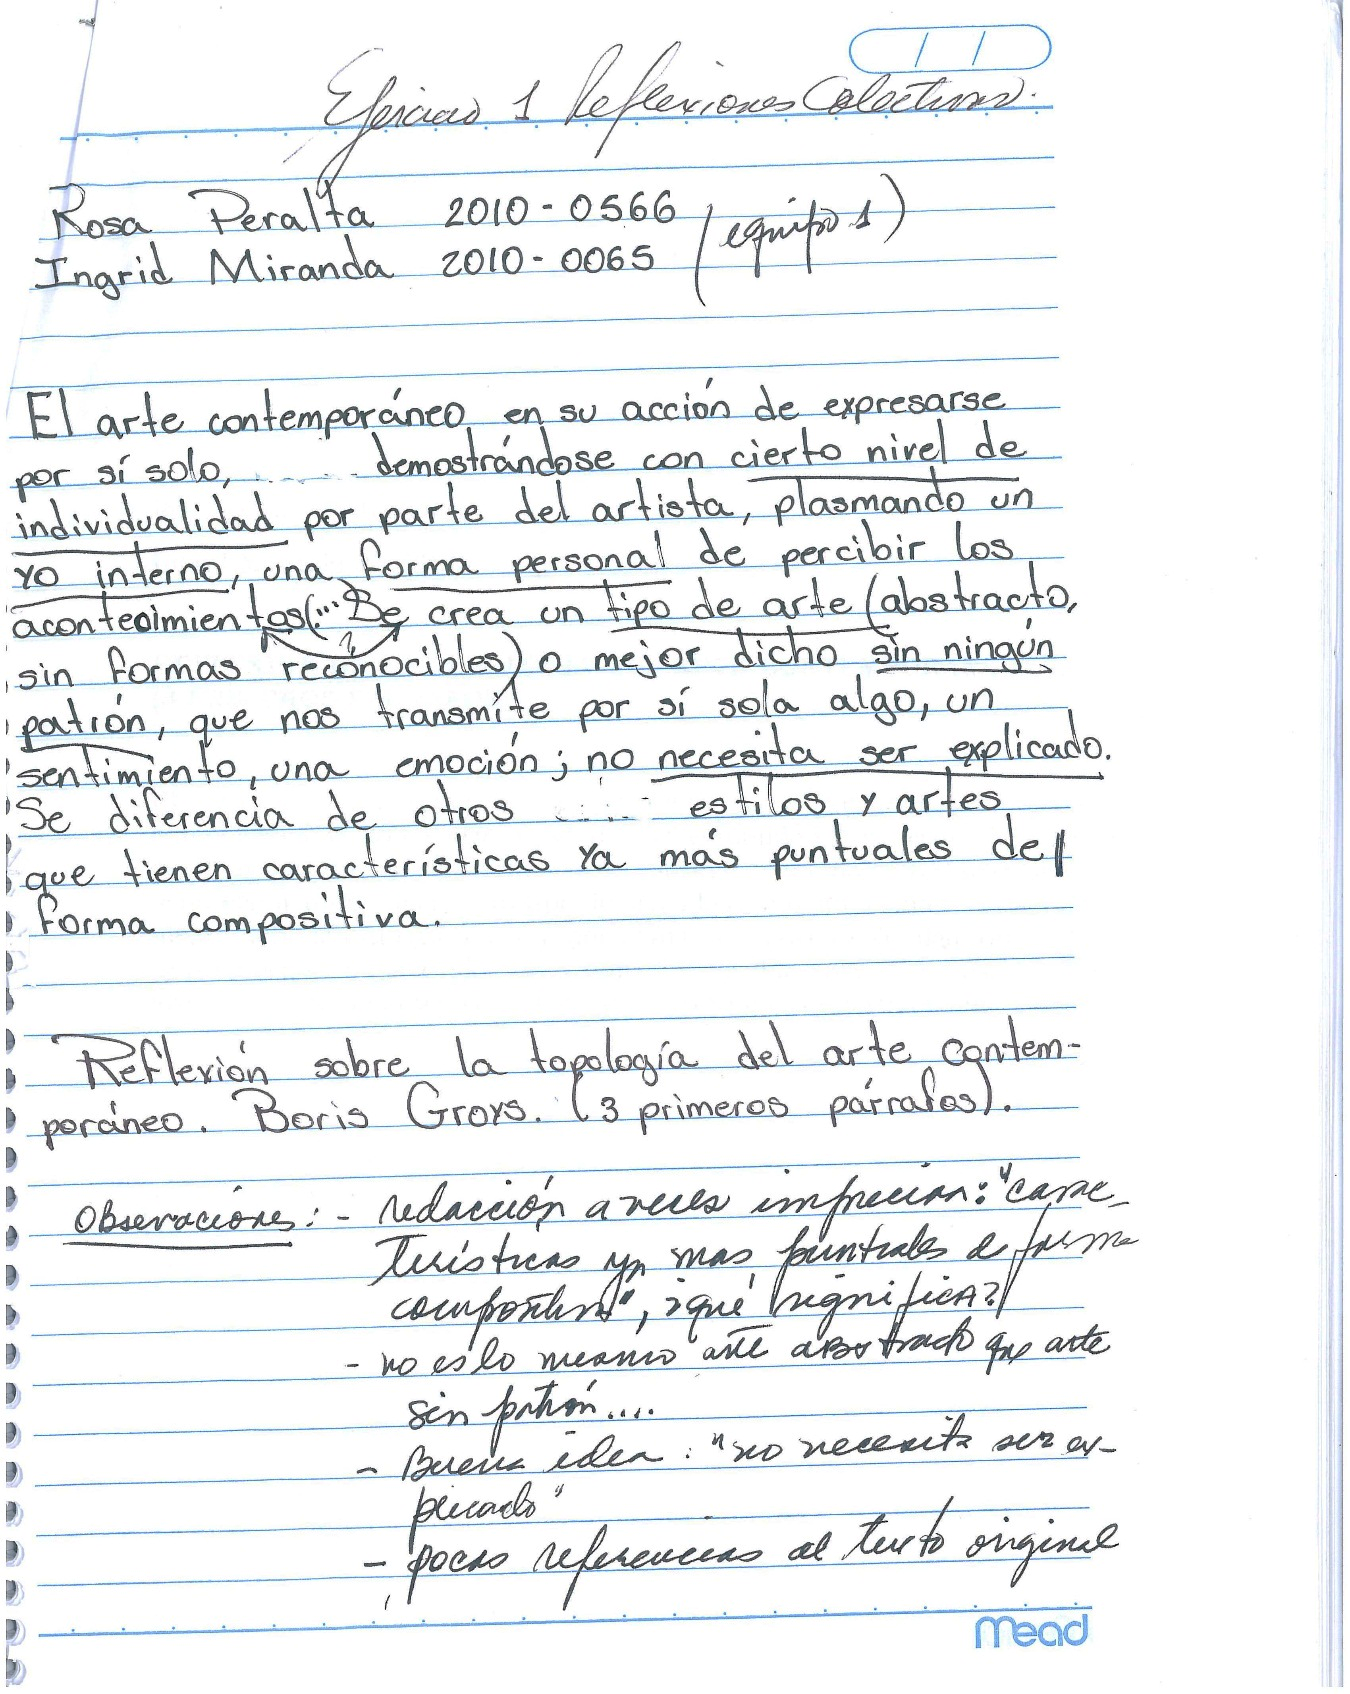 Ejercicio 1 Reflexiones Colectivas.
Rosa Peralta 2010-0566
(equipo 1)
Ingrid Miranda 2010-0065
El arte contemporáneo en su acción de expresarse
por sí solo, demostrándose con cierto nivel de
individualidad por parte del artista, plasmando un
yo interno, una forma personal de percibir los
acontecimientos(... Se crea un tipo de arte (abstracto,
?
sin formas reconocibles) o mejor dicho sin ningún
patrón, que nos transmite por sí sola algo, un
sentimiento, una emoción; no necesita ser explicado.
Se diferencia de otros estilos y artes
que tienen características ya más puntuales de
forma compositiva.
Reflexión sobre la topología del arte contem-
poráneo. Boris Groys. (3 primeros párrafos).
Observaciones: - redacción a veces imprecisa: "carac-
terísticas ya mas puntuales de forma
compositiva", ¿qué significa?
- no es lo mesmo arte abstracto que arte
sin patrón....
- Buena idea: "no necesita ser ex-
plicado"
- pocas referencias al texto original
Mead